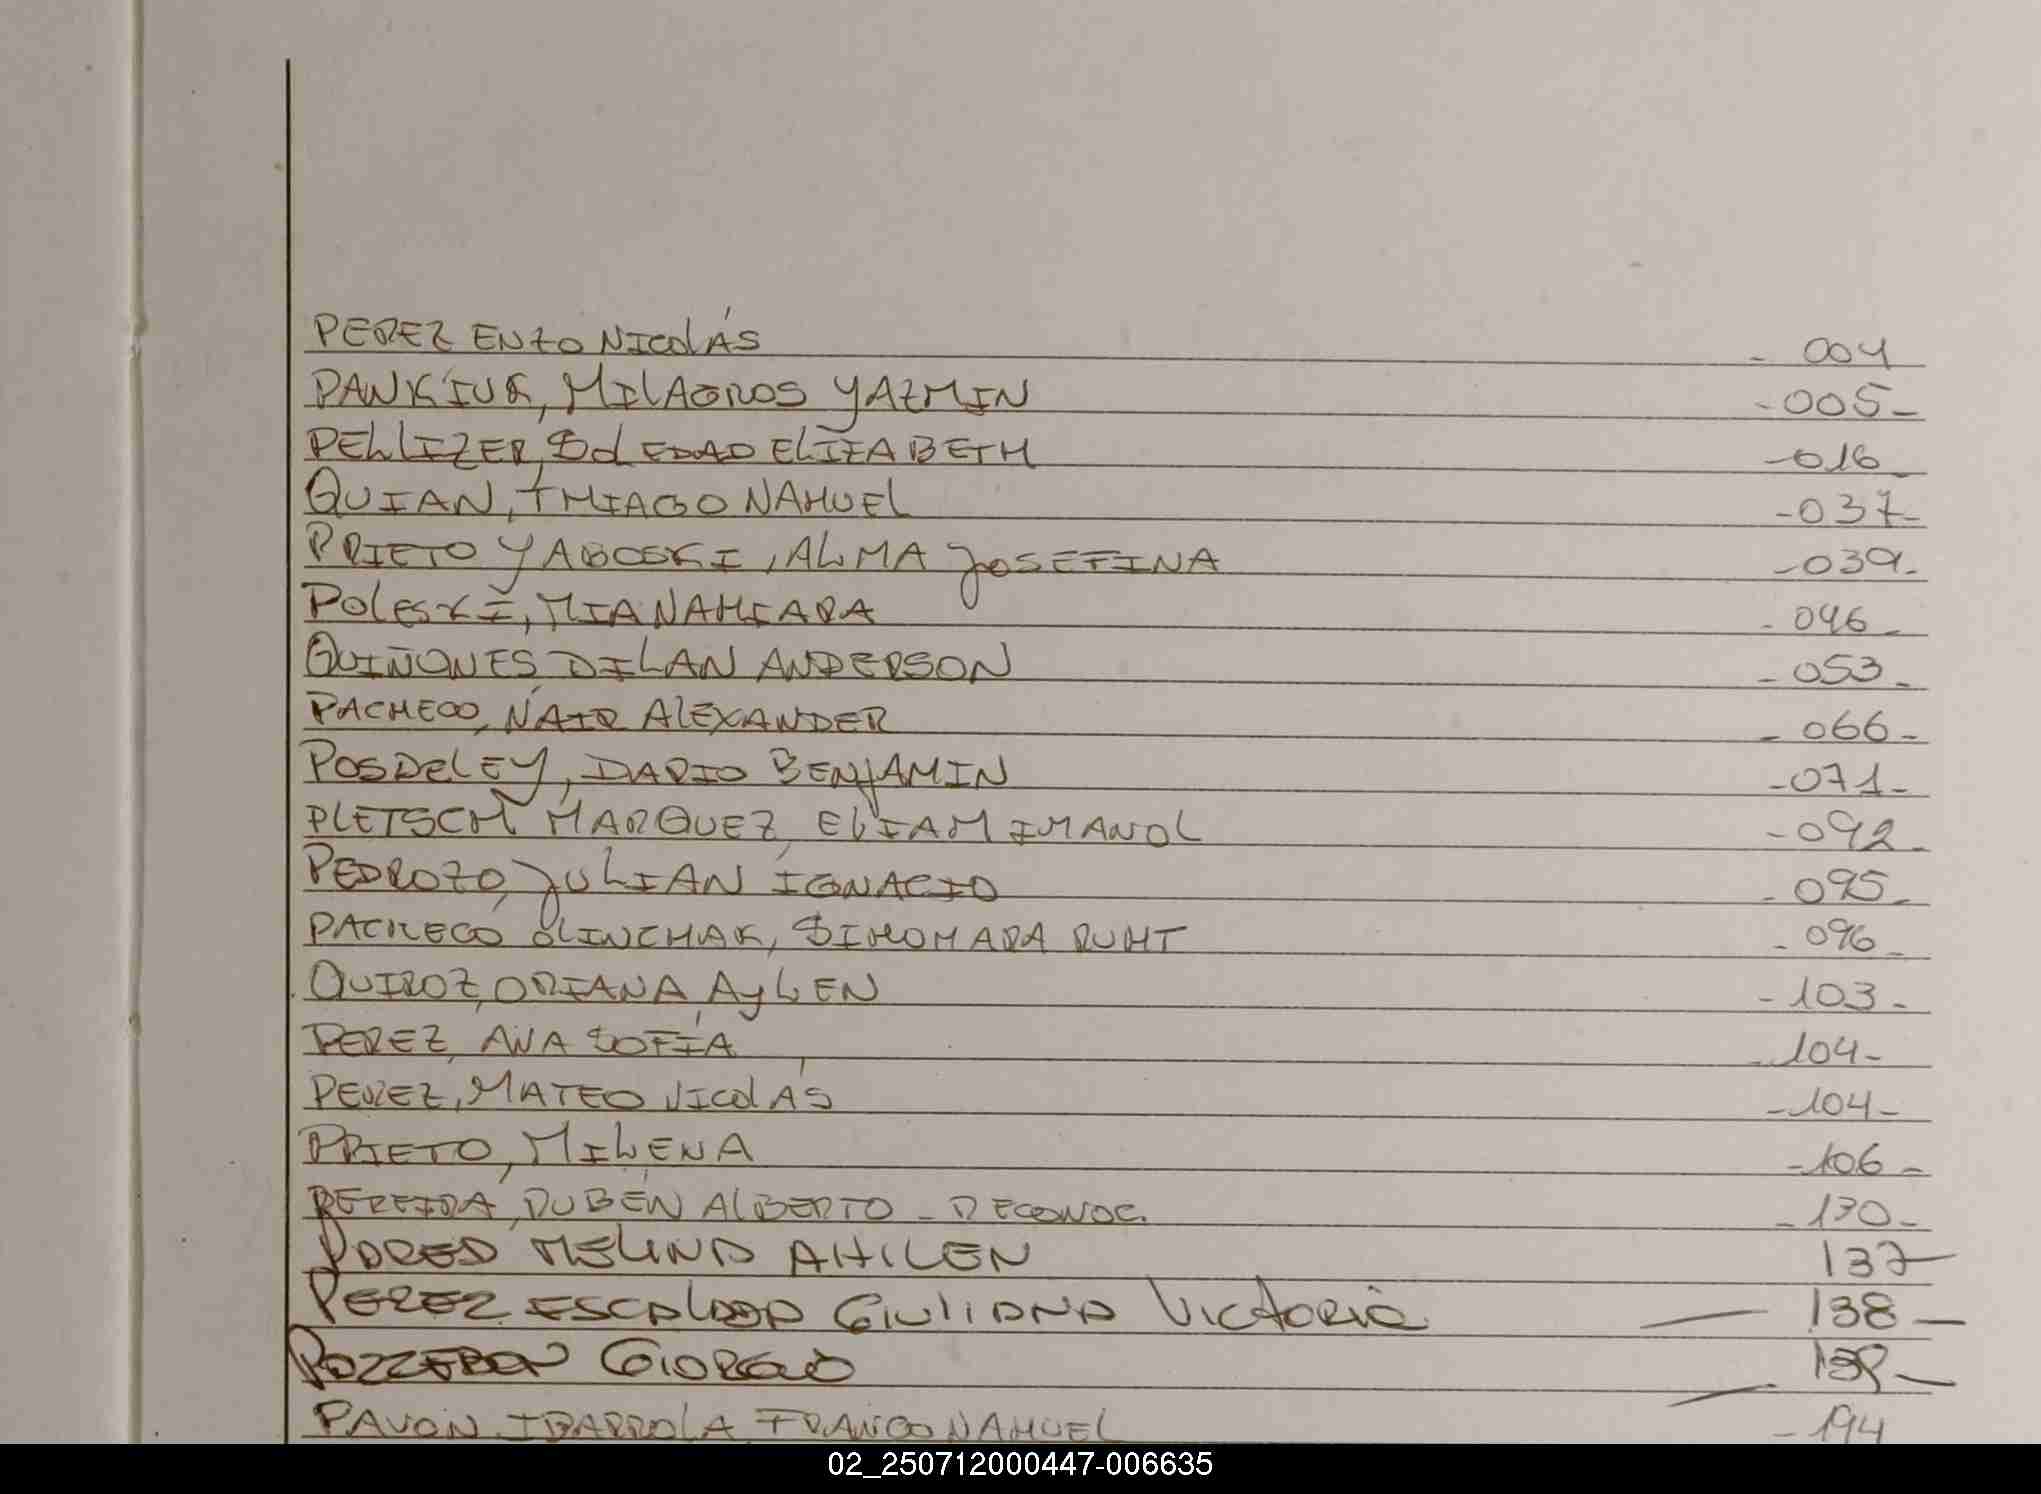 PEREZ ENZO NICOLÁS - 004
PANKIUK, MILAGROS YAZMIN - 005 -
PELLIZER, SOLEDAD ELIZABETH - 016 -
QUIAN, THIAGO NAHUEL - 037 -
PRIETO YABOSKI, ALMA JOSEFINA - 039 -
POLESKI, MIA NAHIARA - 046 -
QUIÑONES DILAN ANDERSON - 053 -
PACHECO, NAIR ALEXANDER - 066 -
POSDELEY, DARIO BENJAMIN - 071 -
PLETSCH MARQUEZ, ELIAM IMANOL - 092 -
PEDROZO, JULIAN IGNACIO - 095 -
PACHECO OLINCHAK, SIHOMARA RUHT - 096 -
QUIROZ, ORIANA AYLEN - 103 -
PEREZ, ANA SOFÍA - 104 -
PEREZ, MATEO NICOLÁS - 104 -
PRIETO, MILENA - 106 -
PEREIRA, RUBÉN ALBERTO - RECONOC. - 130 -
MELINA AHILEN 137 -
PEREZ ESCALADA GIULIANA VICTORIA - 138 -
POZZEBON GIORGIO -
PAVON IBARROLA, FRANCO NAHUEL - 194
02_250712000447-006635